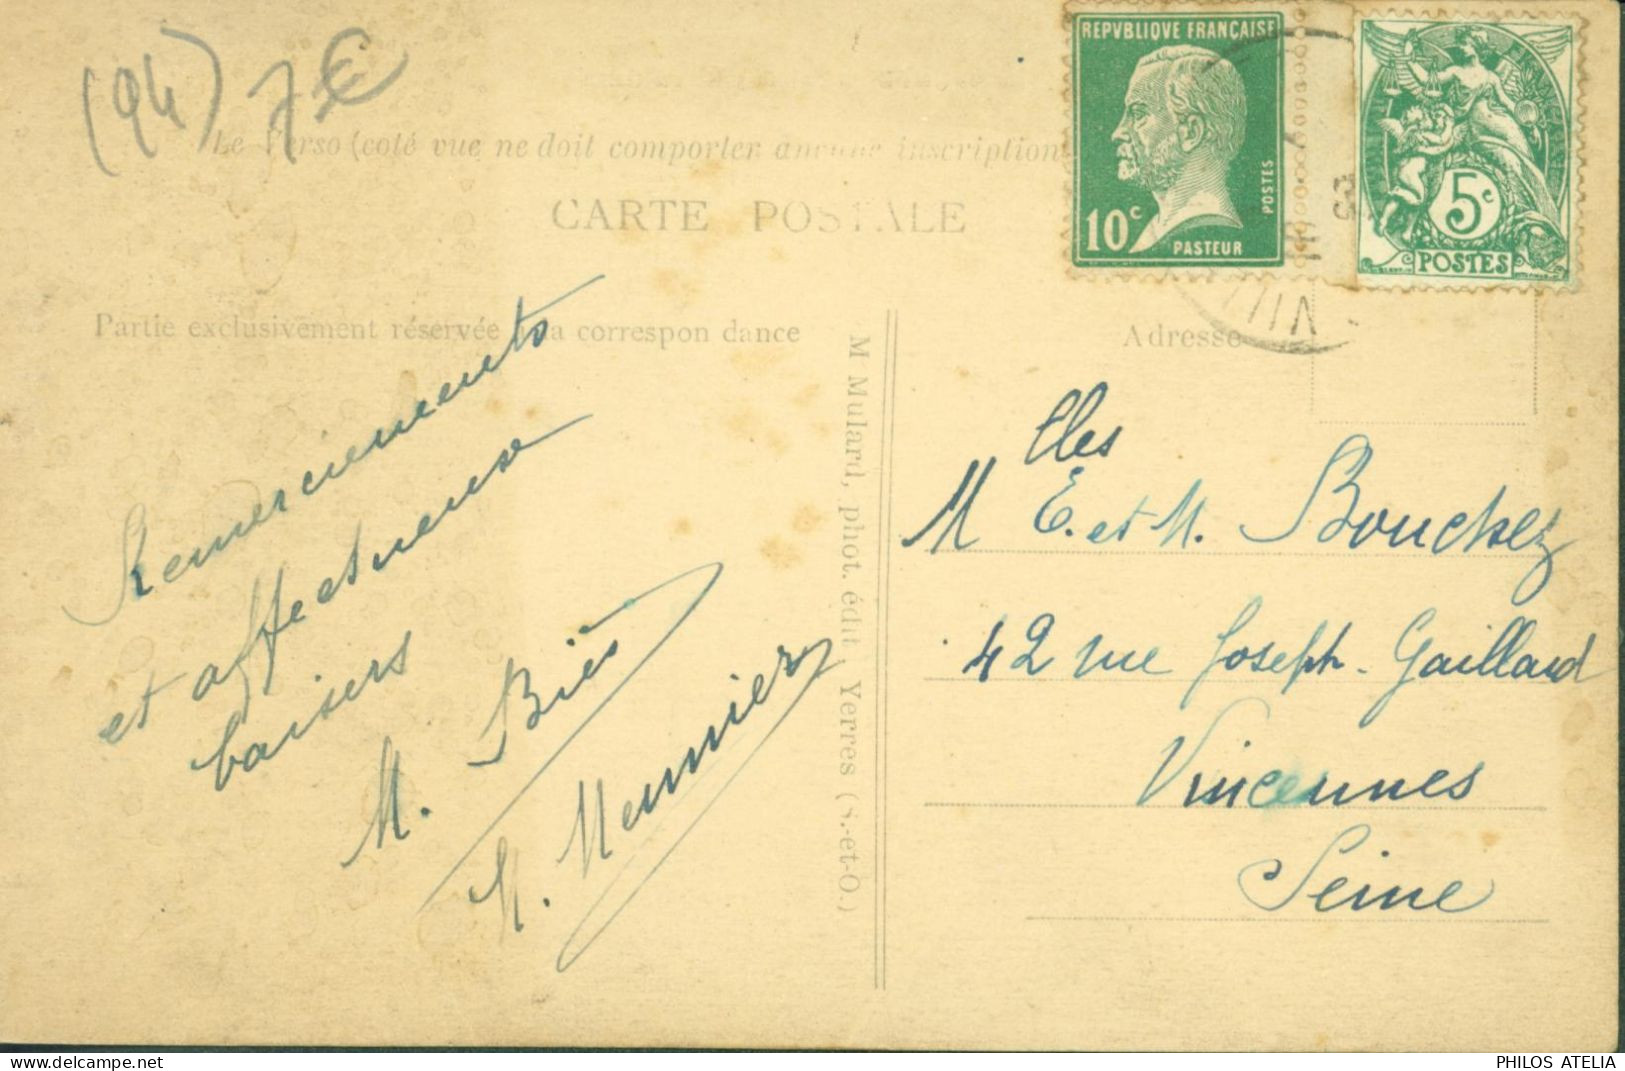 (94) 7€
Le Verso (coté vue ne doit comporter aucune inscription
CARTE POSTALE
REPVBLIQVE FRANÇAISE
10c
POSTES
PASTEUR
5c
POSTES
Partie exclusivement réservée à la correspon dance
Adresse
Remerciements
et affectueux
baisers
M. Biès
M. Meunier
M Mulard, phot. édit Yerres (S.-et-O.)
Melles E. et M. Bouchez
42 rue Joseph-Gaillard
Vincennes
Seine
PHILOS ATELIA